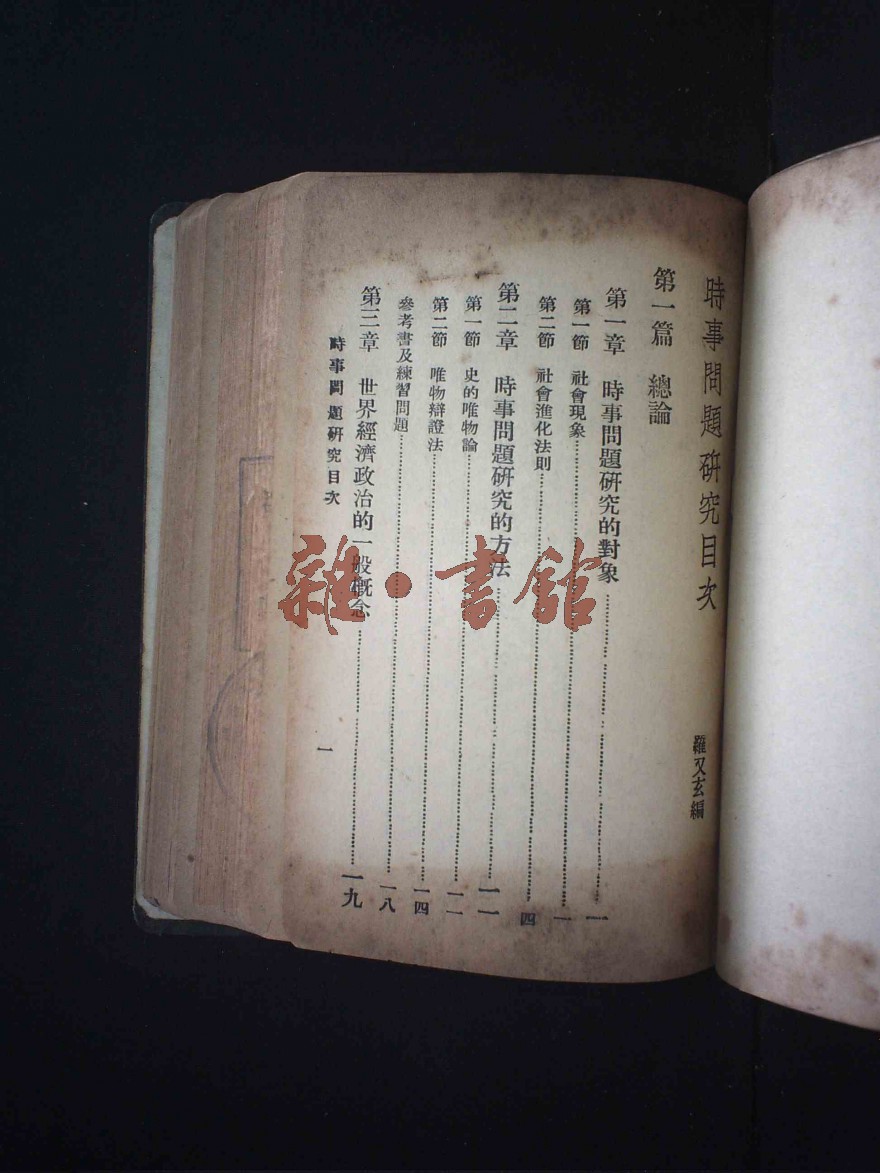 時事問題研究目次
羅又玄編
第一篇 總論
第一章 時事問題研究的對象……一
第一節 社會現象……一
第二節 社會進化法則……四
第二章 時事問題研究的方法……一一
第一節 史的唯物論……一一
第二節 唯物辯證法……一四
參考書及練習問題……一八
第三章 世界經濟政治的一般概念……一九
時事問題研究目次
一
雜·書館